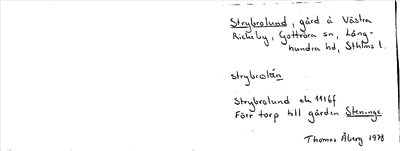 Strybrolund, gård å Västra
Rickeby, Gottröra sn, Lång-
hundra hd, Sthlms l.
strybrolä̀n
Strybrolund ek 1116f
Förr torp till gården Steninge.
Thomas Åberg 1978